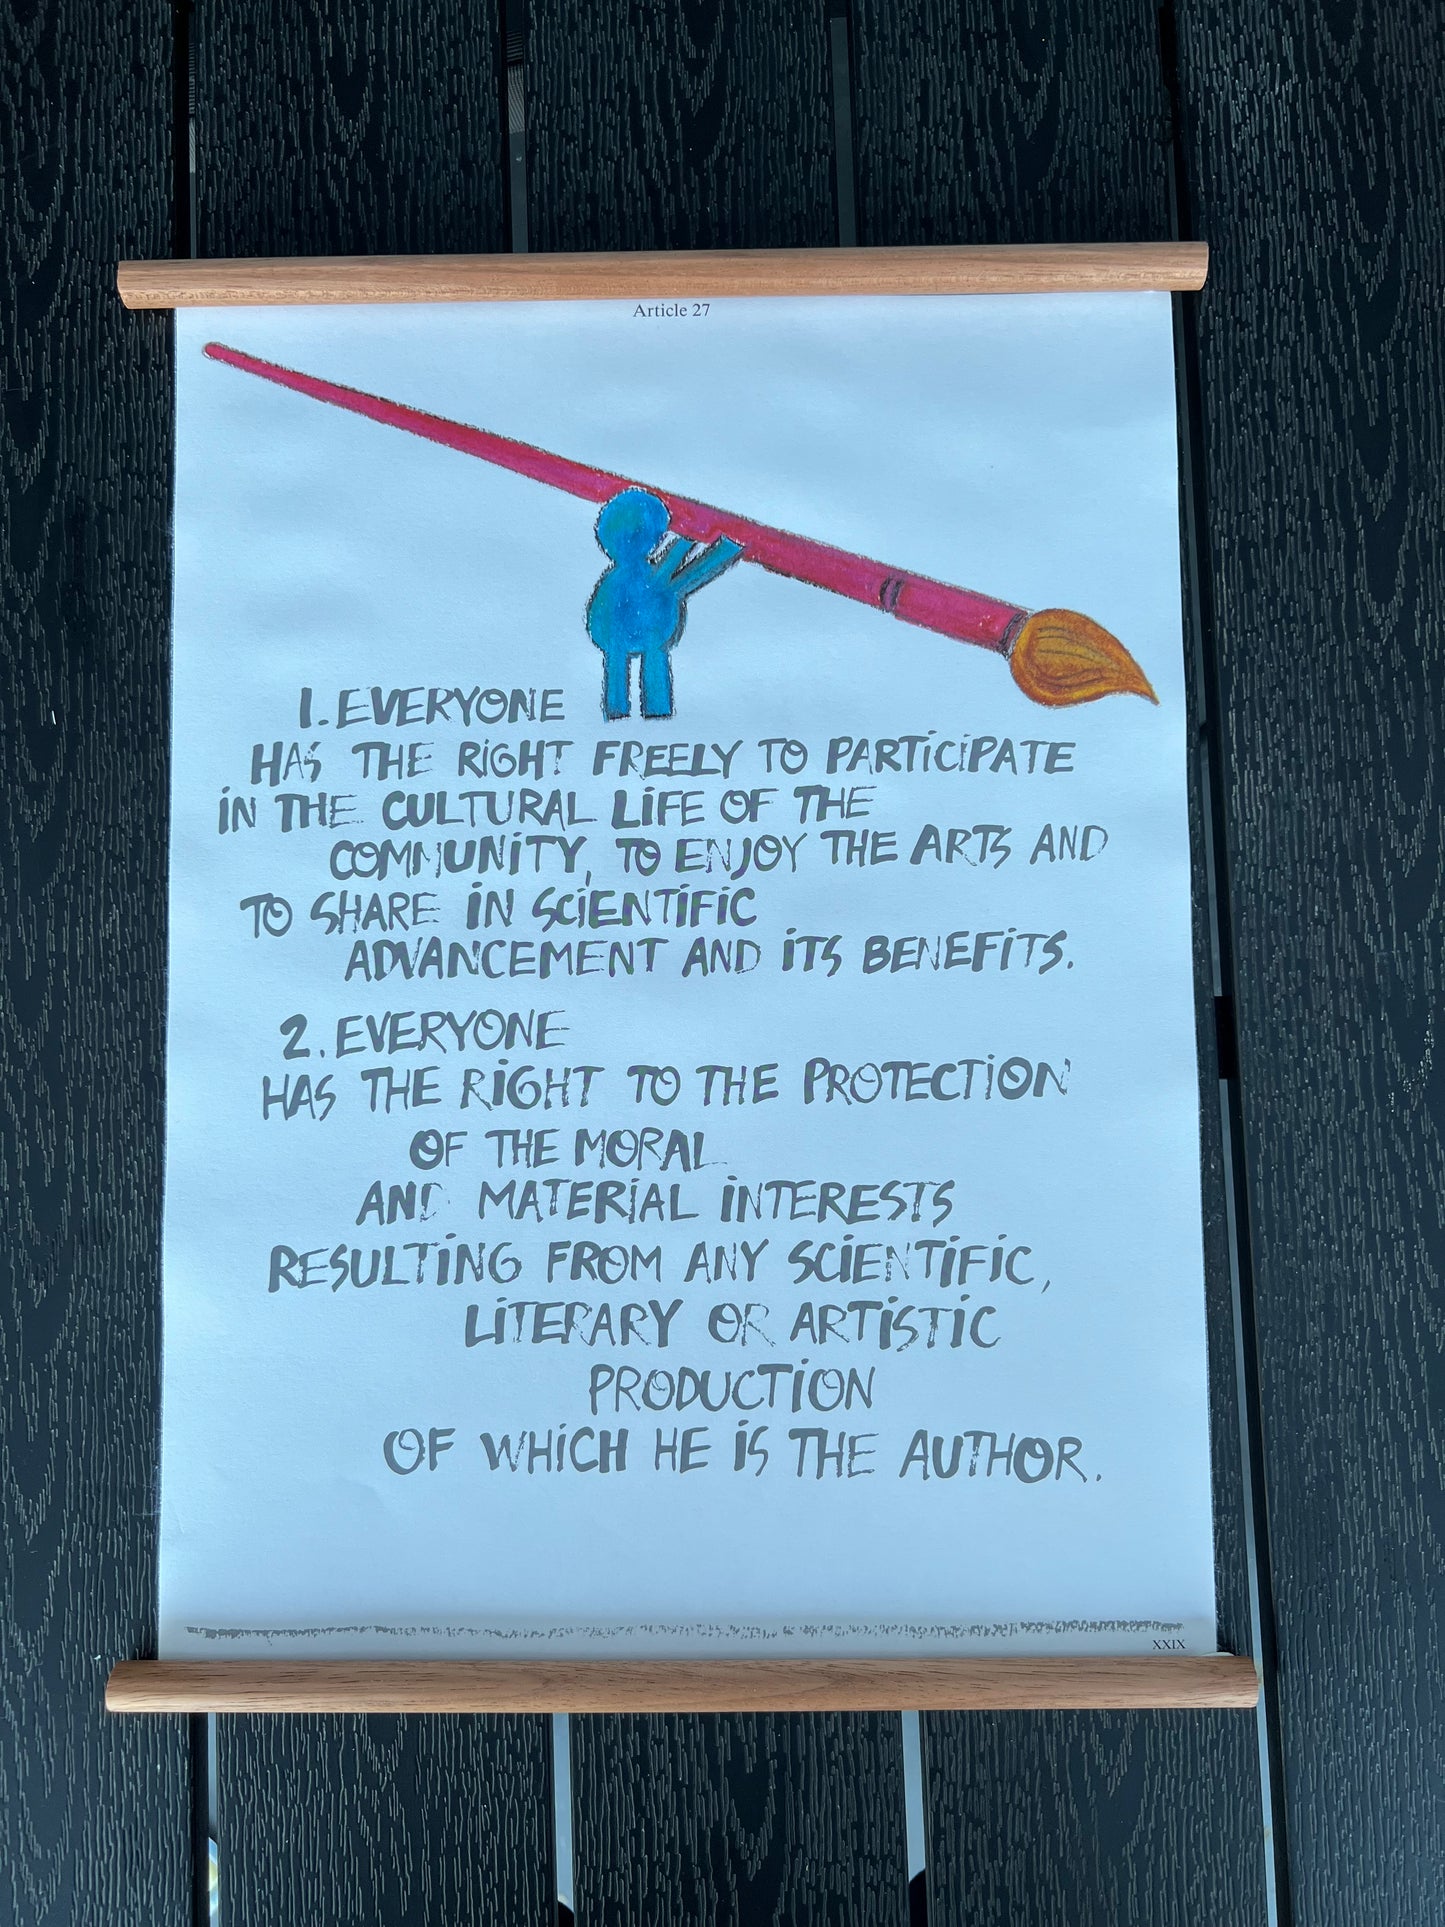 Article 27
1. EVERYONE
HAS THE RIGHT FREELY TO PARTICIPATE
IN THE CULTURAL LIFE OF THE
COMMUNITY, TO ENJOY THE ARTS AND
TO SHARE IN SCIENTIFIC
ADVANCEMENT AND ITS BENEFITS.
2. EVERYONE
HAS THE RIGHT TO THE PROTECTION
OF THE MORAL
AND MATERIAL INTERESTS
RESULTING FROM ANY SCIENTIFIC,
LITERARY OR ARTISTIC
PRODUCTION
OF WHICH HE IS THE AUTHOR.
XXIX